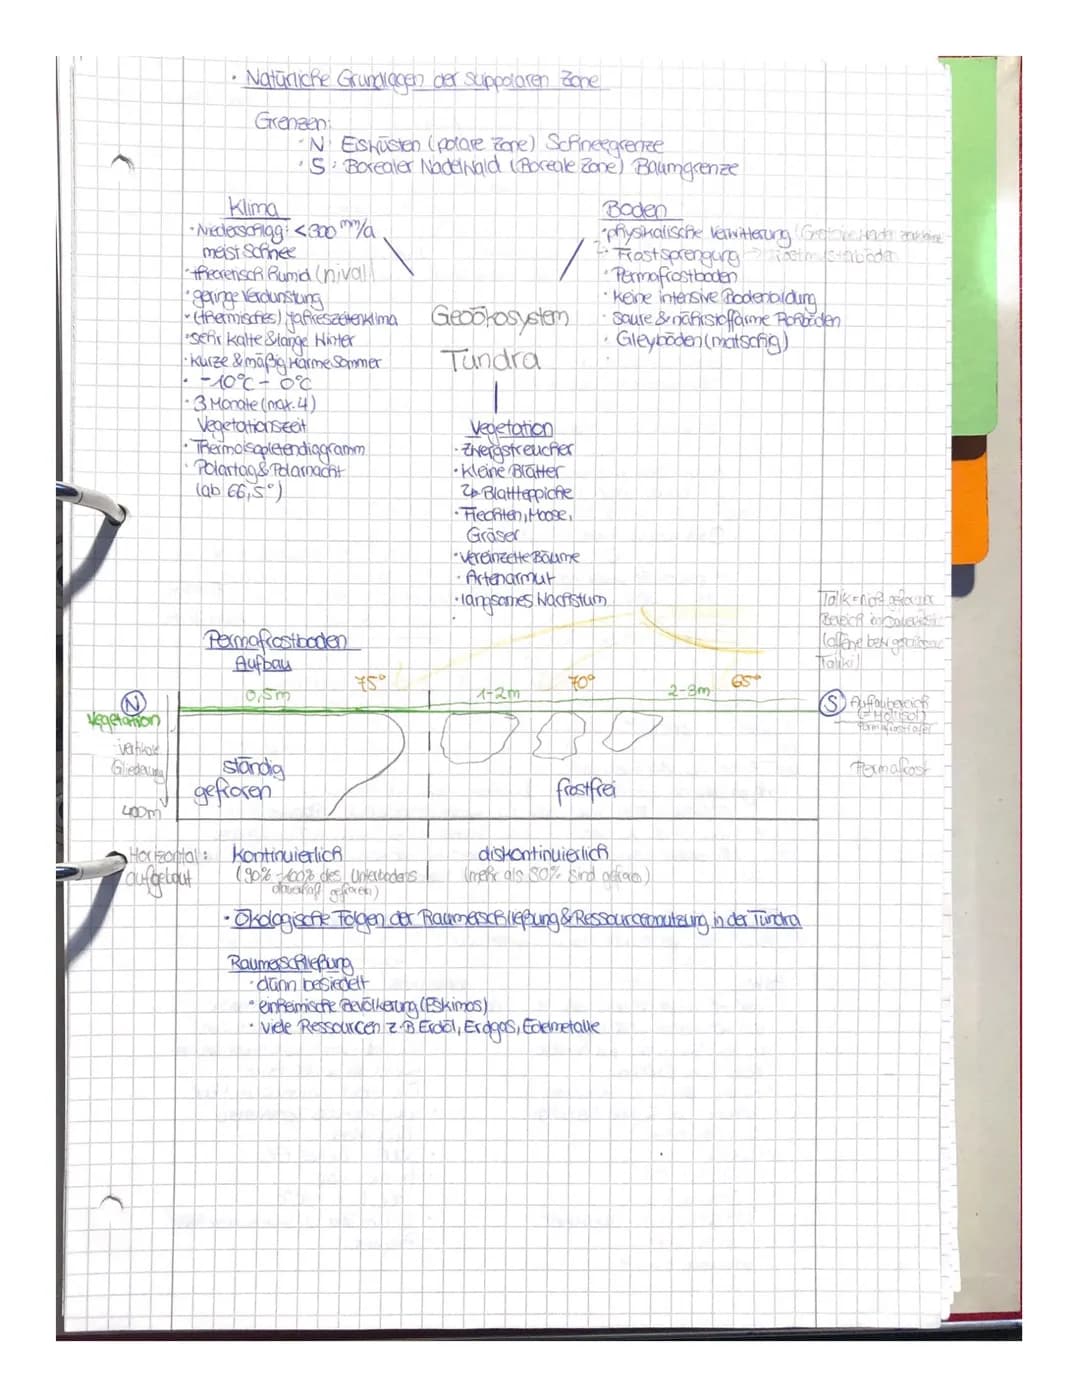 · Natürliche Grundlagen der suppolaren Zone
Grenzen:
· N: Eisküsten (polare Zone) Schneegrenze
· S: Borealer Nadelwald (Boreale Zone) Baumgrenze
Klima
· Niederschlag: <300 mm/a
meist Schnee
· theoretisch humid (nival)
· geringe Verdunstung
· (thermisches) Jahreszeitenklima
· sehr kalte & lange Winter
· kurze & mäßig warme Sommer
· -10°C - 0°C
· 3 Monate (max. 4)
Vegetationszeit
· Thermoisoplethendiagramm
· Polartag & Polarnacht
(ab 66,5°)
Boden
· physikalische Verwitterung
· Frostsprengung
· Permafrostboden
· keine intensive Bodenbildung
· Saure & nährstoffarme Rohböden
· Gleyböden (matschig)
Geoökosystem
Tundra
Vegetation
· Zwergstreucher
· kleine Blätter
↳ Blattteppiche
· Flechten, Moose,
Gräser
· vereinzelte Bäume
· Artenarmut
· langsames Wachstum
Talik = nicht
Bereich
Taliki)
Permafrostboden
Aufbau
75° 70° 65°
0,5m 1-2m 2-3m
N
S
Vegetation
Auftaubereich
(= Mollisol)
Permafrosttafel
vertikale
Gliederung
400m
ständig
gefroren
frostfrei
Permafrost
Horizontal:
aufgebaut
kontinuierlich
(90%-100% des Unterbodens
dauerhaft gefroren)
diskontinuierlich
(mehr als 50% sind gefroren)
· Ökologische Folgen der Raumerschließung & Ressourcennutzung in der Tundra
Raumerschließung
· dünn besiedelt
· einheimische Bevölkerung (Eskimos)
· viele Ressourcen z.B Erdöl, Erdgas, Edelmetalle